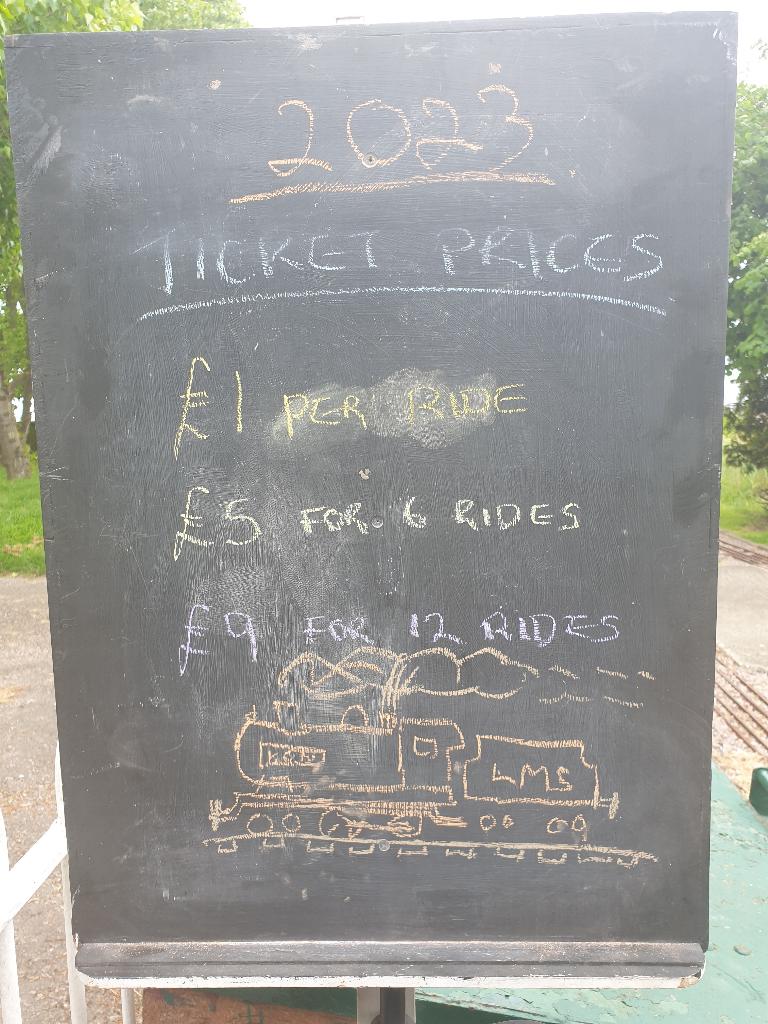 2023
TICKET PRICES
£1 PER RIDE
£5 FOR 6 RIDES
£9 FOR 12 RIDES
LMS